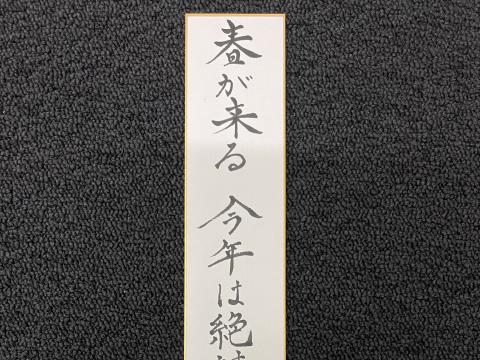 春が来る 今年は絶